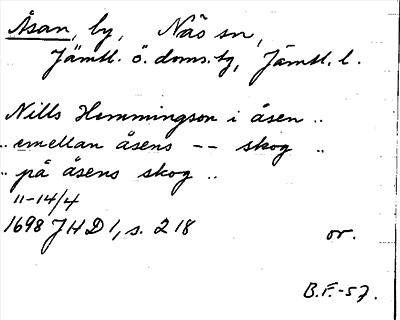 Åsan, by, Näs sn,
Jämtl. ö. doms.by, Jämtl. l.
Nills Hemmingson i åsen ..
.. emellan åsens -- skog ..
.. på åsens skog ..
11-14/4
1698 JHD 1, s. 218 or.
B.F.-57.